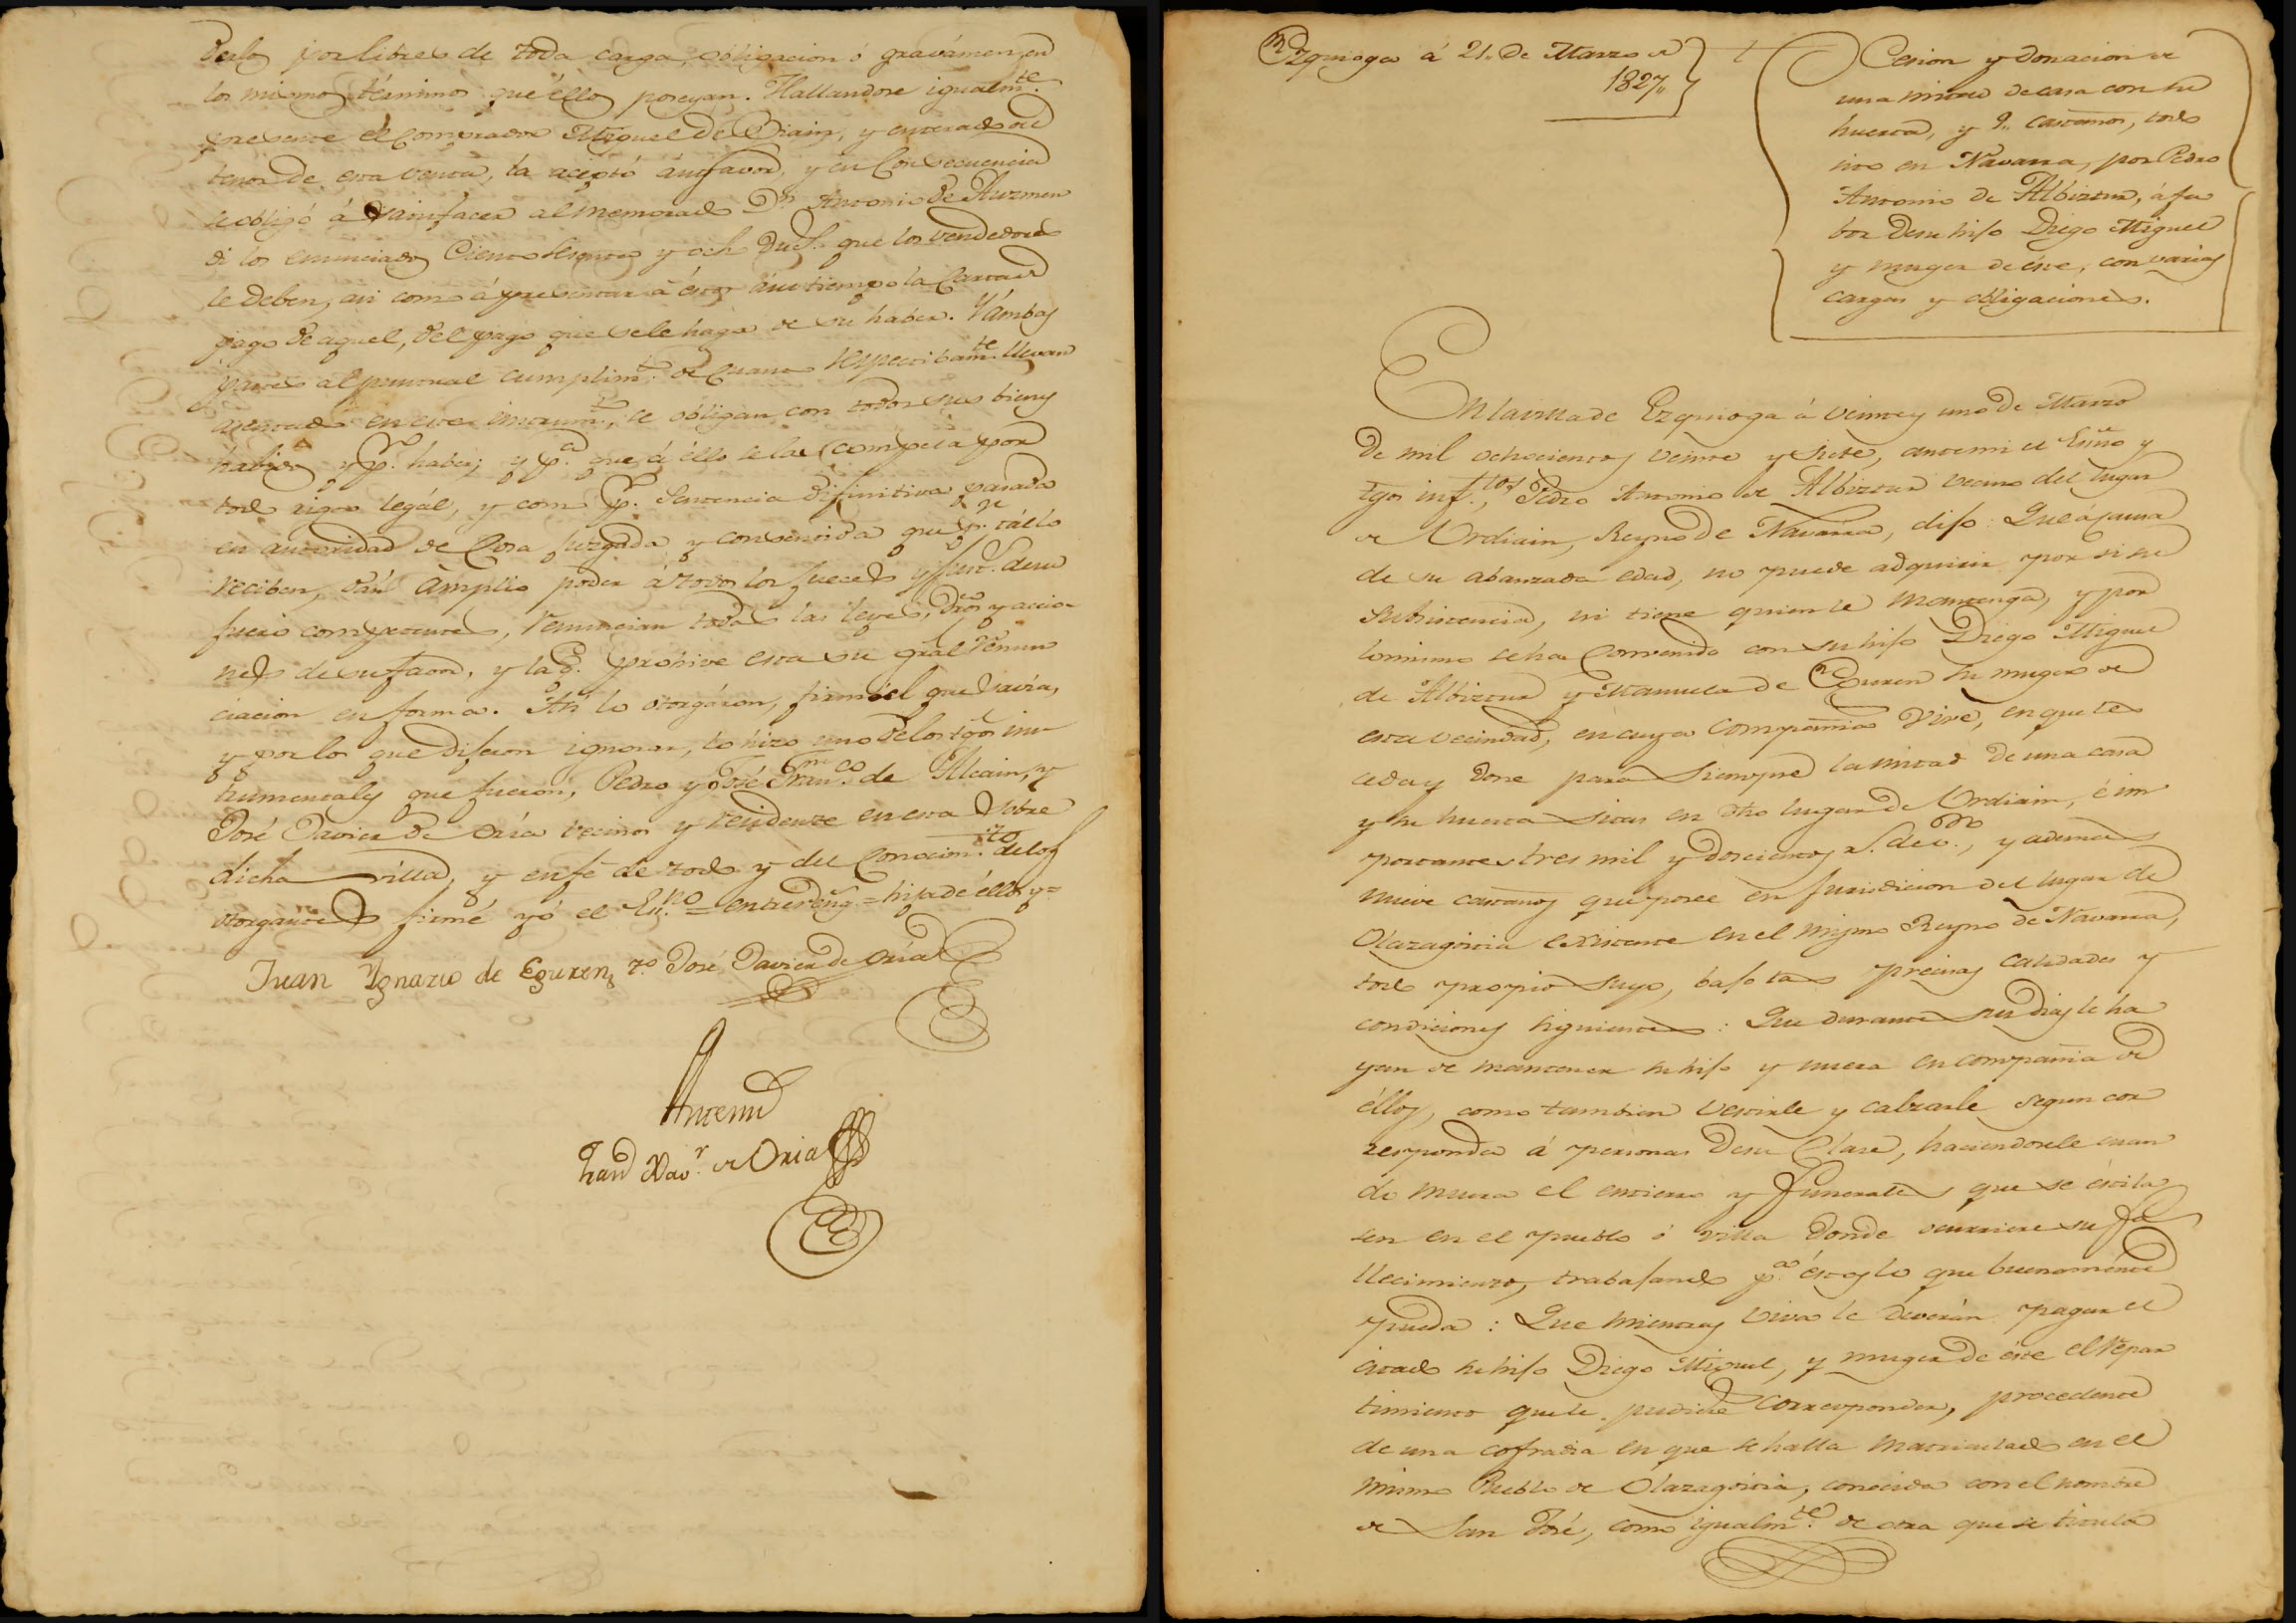 derlos por libres de toda carga, obligacion ó gravámen, en
los mismos términos que éllos poseyan. Hallandose igualm.te
presente él comprador Miguel de Oriain, y enterado del
tenor de esta venta, la aceptó á su favor, y en Consecuencia
se obligó á satisfacer al memorado D.n Antonio de Auzmendi
los enunciados Ciento sesenta y och Duc.s que los vendedores
le deben, asi como á presentar á éstos á su tiempo la Carta de
pago de aquel, del pago que se le haga de su haber. Y ámbas
partes al puntual cumplim.to de cuanto respectibam.te llevan
asentado en este instrum.to, se obligan con todos sus bienes
habidos y p.r haber; y p.a que á éllo se les compela por
todo rigor legál, y como p.r Sentencia difinitiva pasada
en autoridad de Cosa juzgada y consentida que p.r tál lo
reciben, dán ámplio poder á todos los Jueces y Just.s de su
fuero competente, renuncian todas las leyes, dros y accio-
nes de su favor, y la q.e prohive esta su grâl renun-
ciacion en forma. Asi lo otorgáron, firmó el que savia,
y por los que dijeron ignorar, lo hizo uno de los tgos ins-
trumentales que fueron, Pedro y José Fran.co de Alcain, y
José Javier de Oria vecinos y residente en esta sobre
dicha villa, y en fé de todo y del Conocim.ito de los
otorgantes firmé yó el Es.no = entrerreng.s = hija de éllos y =
Juan Ygnazio de Eguren t.o José Javier de Oria
Antemi
Juan Xav.r de Oria
Ezquioga á 21,, de Marzo de
1827,,
Cesion y donacion de
una mitad de casa con su
huerta, y 9,, castaños, todo
sito en Navarra, por Pedro
Antonio de Albiztur, á fa
bor de su hijo Diego Miguel
y muger de éste, con varias
cargas y obligaciones.
En la villa de Ezquioga á veinte y uno de Marzo
de mil ochocientos veinte y siete, ante mi el Esnõ y
tgos inf.tos, Pedro Antonio de Albiztur vecino del lugar
de Urdiain, Reyno de Navarra, dijo: Que á causa
de su abanzada edad, no puede adquirir por si su
subsistencia, ni tiene quien le mantenga, y por
lo mismo se ha Convenido con su hijo Diego Miguel
de Albiztur y Manuela de Eguren su muger de
esta vecindad, en cuya compañia vive, en que les
ceda y done para siempre la mitad de una casa
y su huerta sitas en dho lugar de Urdiain, é im
portante tres mil y doscientos r.s de v.on, y ademas
nueve castaños que posee en jurisdicion del lugar de
Olazagoitia existente en el mismo Reyno de Navarra,
todo propio suyo, bajo las precisas calidades y
condiciones siguientes: Que durante sus dias le ha
yan de mantener su hijo y nuera en compañia de
éllos, como tambien vestirle y calzarle segun cor
responda á personas de su Clase, haciendosele cuan
do muera el entierro y funerales que se éstila
sen en el pueblo ó villa donde ocurriere su fa
llecimiento, trabajando p.a éstos lo que buenamente
pueda: Que mientras viva le deverán pagar el
citado su hijo Diego Miguel, y muger de éste el repar
timiento que le pudiere corresponder, procedente
de una cofradia en que se halla matriculado en el
mismo Pueblo de Olazagoitia, conocida con el nombre
de San José, como igualm.te de otra que se titula